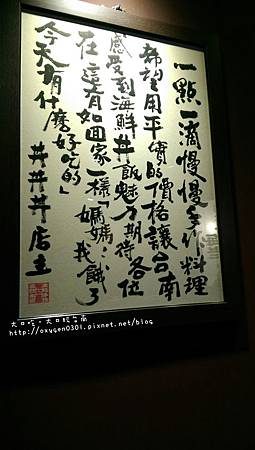 一點一滴慢慢手作料理
希望用平實的價格讓台南
感受到海鮮丼飯魅力期待各位
在這有如回家一樣「媽媽…我餓了
今天有什麼好吃的」 丼丼丼店主
大口吃。大口玩台南
http://oxygen0301.pixnet.net/blog